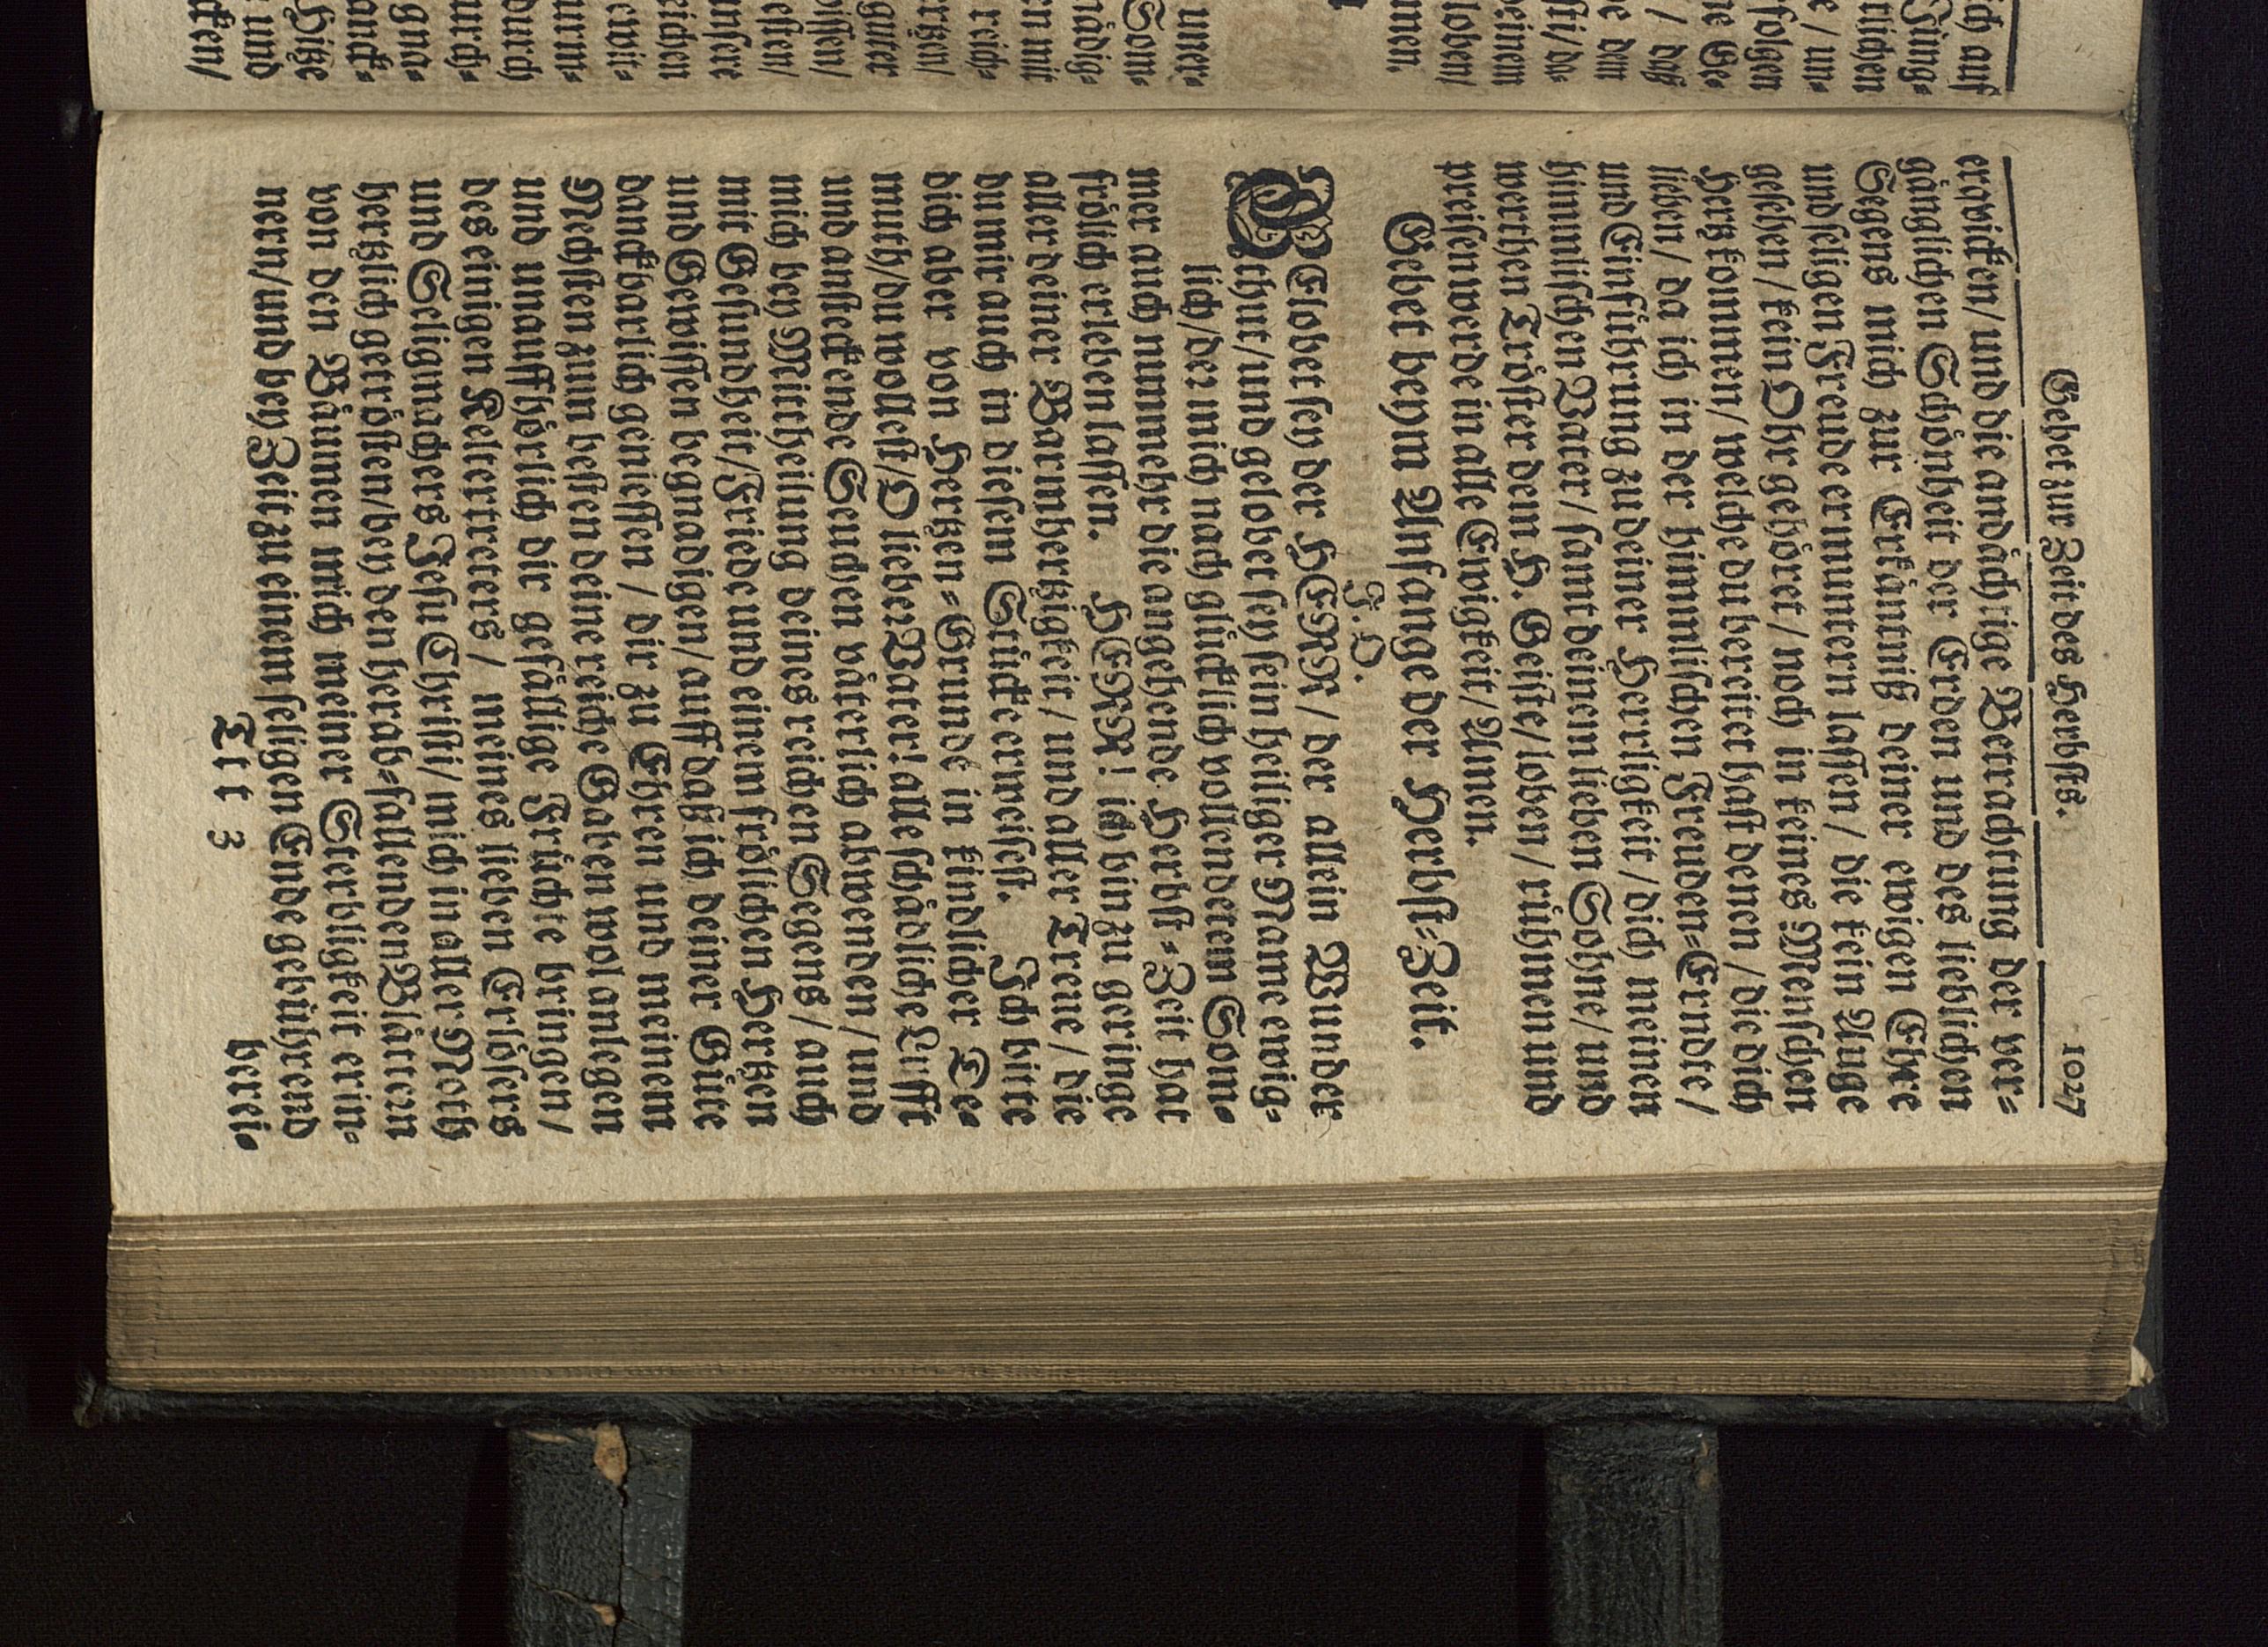 Gebet zur Zeit des Herbsts. 1027
erqvicken/ und die andächtige Betrachtung der ver⸗
gänglichen Schönheit der Erden und des lieblichen
Segens mich zur Erkäntniß deiner ewigen Ehre
und seligen Freude ermuntern lassen / die kein Auge
gesehen / kein Ohr gehöret / noch in keines Menschen
Hertz kommen/ welche du bereitet hast denen / die dich
lieben / da ich in der himmlischen Freuden⸗Erndte /
und Einführung zu deiner Herrligkeit / dich meinen
himmlischen Vater / samt deinem lieben Sohne / und
werthen Tröster dem H. Geiste / loben / rühmen und
preisen werde in alle Ewigkeit / Amen.
J. O.
Gebet beym Anfange der Herbst⸗Zeit.
GElobet sey der HERR / der allein Wunder
thut / und gelobet sey sein heiliger Name ewig⸗
lich / der mich nach glücklich vollendetem Som⸗
mer auch nunmehr die angehende Herbst⸗Zeit hat
frölich erleben lassen. HERR ! ich bin zu geringe
aller deiner Barmhertzigkeit / und aller Treue / die
du mir auch in diesem Stücke erweisest. Ich bitte
dich aber von Hertzen⸗Grunde in kindlicher De⸗
muth / du wollest / O lieber Vater! alle schädliche Lufft
und ansteckende Seuchen väterlich abwenden / und
mich bey Mittheilung deines reichen Segens / auch
mit Gesundheit / Friede und einem frölichen Hertzen
und Gewissen begnadigen / auff daß ich deiner Güte
danckbarlich geniessen / dir zu Ehren und meinem
Nechsten zum besten deine reiche Gaben wol anlegen
und unauffhörlich dir gefällige Früchte bringen /
des einigen Keltertreters / meines lieben Erlösers
und Seligmachers Jesu Christi / mich in aller Noth
hertzlich getrösten / bey den herab⸗fallenden Blättern
von den Bäumen mich meiner Sterbligkeit erin⸗
nern / und bey Zeit zu einem seligen Ende gebührend
Ttt 3 berei⸗